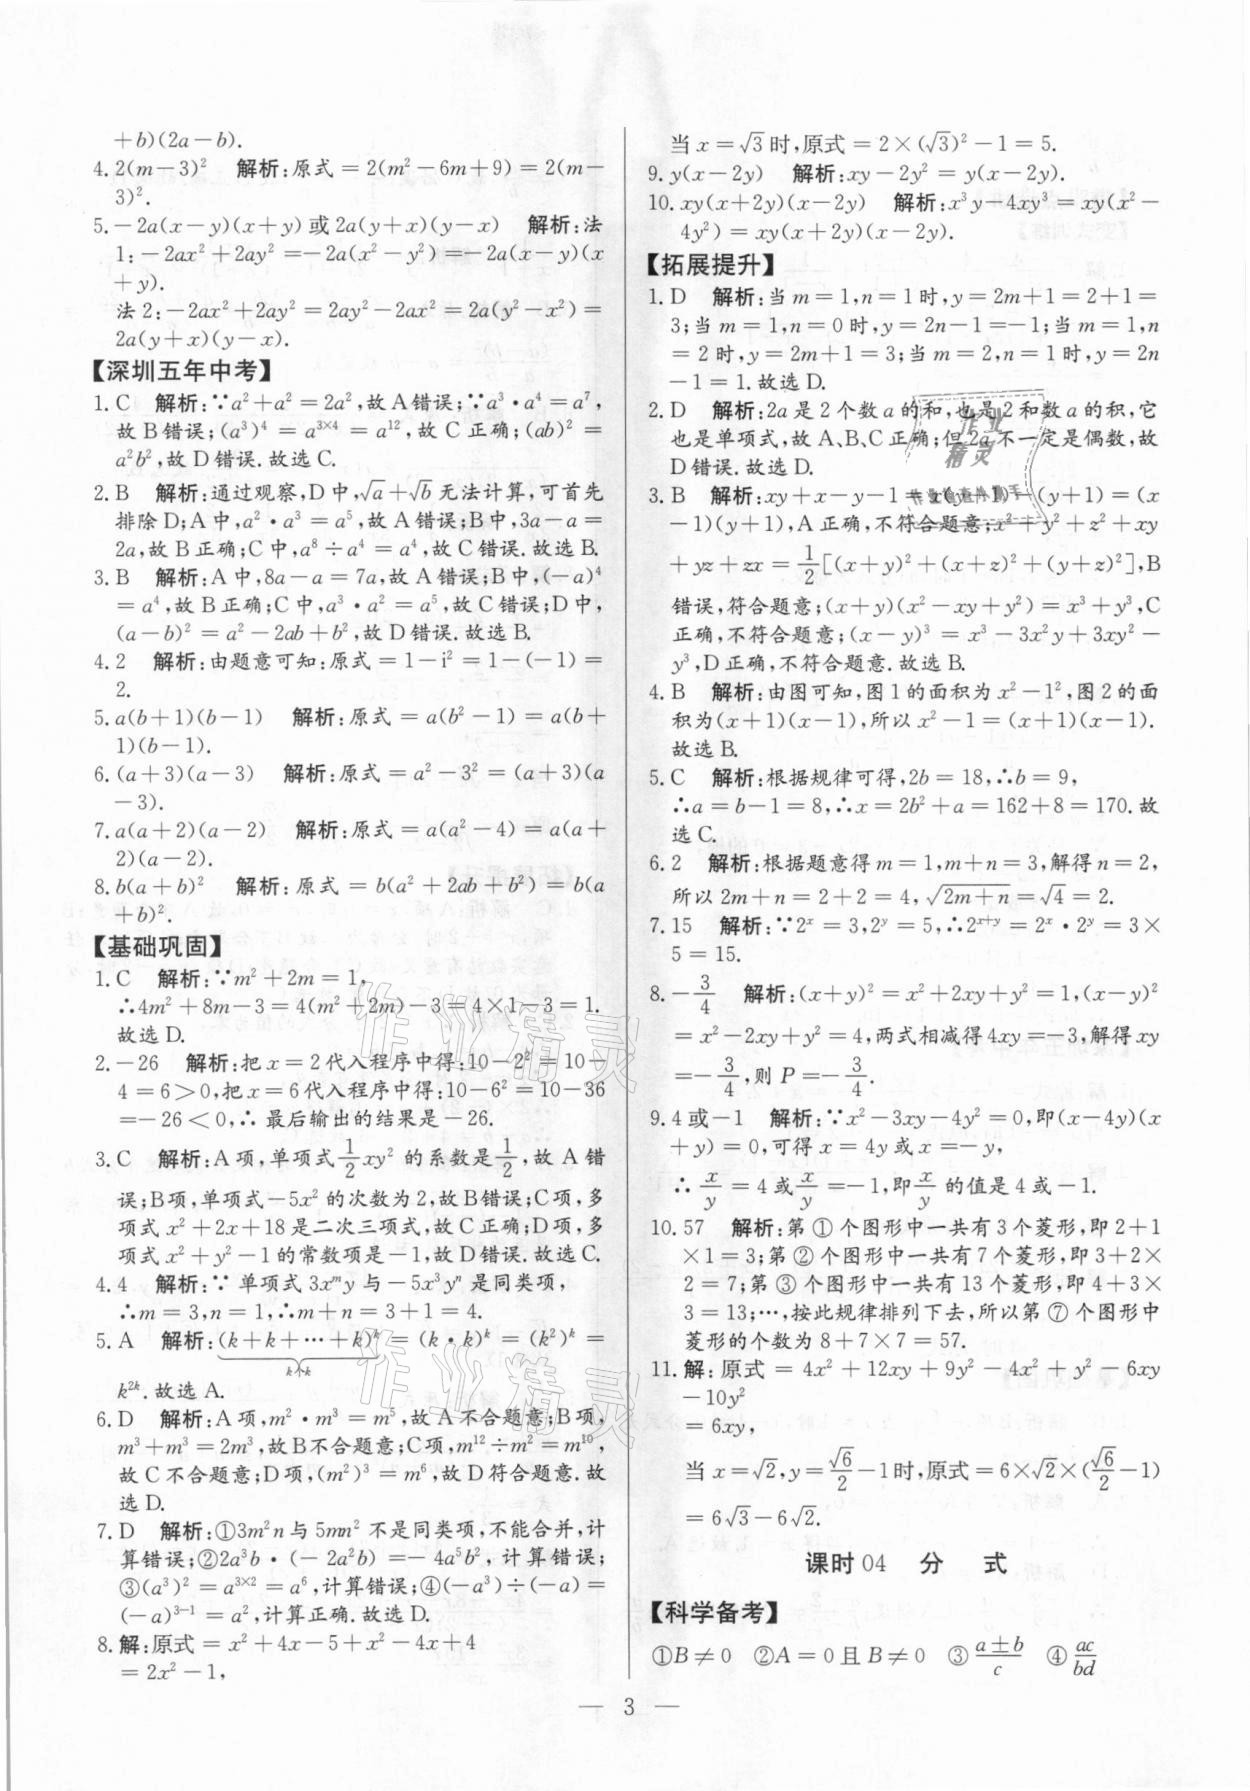 +b)(2a-b).
4. 2(m-3)² 解析:原式=2(m²-6m+9)=2(m-
3)².
5. -2a(x-y)(x+y)或2a(y+x)(y-x) 解析:法
1:-2ax²+2ay²=-2a(x²-y²)=-2a(x-y)(x
+y).
法2:-2ax²+2ay²=2ay²-2ax²=2a(y²-x²)=
2a(y+x)(y-x).
【深圳五年中考】
1. C 解析:∵a²+a²=2a²,故A错误;∵a³·a⁴=a⁷,
故B错误;(a³)⁴=a³ˣ⁴=a¹²,故C正确;(ab)²=
a²b²,故D错误.故选C.
2. B 解析:通过观察,D中,√a+√b无法计算,可首先
排除D;A中,a²·a³=a⁵,故A错误;B中,3a-a=
2a,故B正确;C中,a⁸÷a⁴=a⁴,故C错误.故选B.
3. B 解析:A中,8a-a=7a,故A错误;B中,(-a)⁴
=a⁴,故B正确;C中,a³·a²=a⁵,故C错误;D中,
(a-b)²=a²-2ab+b²,故D错误.故选B.
4. 2 解析:由题意可知:原式=1-i²=1-(-1)=
2.
5. a(b+1)(b-1) 解析:原式=a(b²-1)=a(b+
1)(b-1).
6. (a+3)(a-3) 解析:原式=a²-3²=(a+3)(a
-3).
7. a(a+2)(a-2) 解析:原式=a(a²-4)=a(a+
2)(a-2).
8. b(a+b)² 解析:原式=b(a²+2ab+b²)=b(a
+b)².
【基础巩固】
1. C 解析:∵m²+2m=1,
∴4m²+8m-3=4(m²+2m)-3=4×1-3=1.
故选D.
2. -26 解析:把x=2代入程序中得:10-2²=10-
4=6>0,把x=6代入程序中得:10-6²=10-36
=-26<0,∴最后输出的结果是-26.
3. C 解析:A项,单项式1/2xy²的系数是1/2,故A错
误;B项,单项式-5x²的次数为2,故B错误;C项,多
项式x²+2x+18是二次三项式,故C正确;D项,多
项式x²+y²-1的常数项是-1,故D错误.故选C.
4. 4 解析:∵单项式3xᵐy与-5x³yⁿ是同类项,
∴m=3,n=1,∴m+n=3+1=4.
5. A 解析:(k+k+…+k)ᵏ=(k·k)ᵏ=(k²)ᵏ=
k个k
k²ᵏ.故选A.
6. D 解析:A项,m²·m³=m⁵,故A不合题意;B项,
m³+m³=2m³,故B不合题意;C项,m¹²÷m²=m¹⁰,
故C不合题意;D项,(m²)³=m⁶,故D符合题意.故
选D.
7. D 解析:①3m²n与5mn²不是同类项,不能合并,计
算错误;②2a³b·(-2a²b)=-4a⁵b²,计算错误;
③(a³)²=a³ˣ²=a⁶,计算错误;④(-a³)÷(-a)=
(-a)³⁻¹=a²,计算正确.故选D.
8. 解:原式=x²+4x-5+x²-4x+4
=2x²-1,
当x=√3时,原式=2×(√3)²-1=5.
9. y(x-2y) 解析:xy-2y²=y(x-2y).
10. xy(x+2y)(x-2y) 解析:x³y-4xy³=xy(x²-
4y²)=xy(x+2y)(x-2y).
【拓展提升】
1. D 解析:当m=1,n=1时,y=2m+1=2+1=
3;当m=1,n=0时,y=2n-1=-1;当m=1,n
=2时,y=2m+1=3;当m=2,n=1时,y=2n
-1=1.故选D.
2. D 解析:2a是2个数a的和,也是2和数a的积,它
也是单项式,故A、B、C正确;但2a不一定是偶数,故
D错误.故选D.
3. B 解析:xy+x-y-1=x(y+1)-(y+1)=(x
-1)(y+1),A正确,不符合题意;x²+y²+z²+xy
+yz+zx=1/2[(x+y)²+(x+z)²+(y+z)²],B
错误,符合题意;(x+y)(x²-xy+y²)=x³+y³,C
正确,不符合题意;(x-y)³=x³-3x²y+3xy²-
y³,D正确,不符合题意.故选B.
4. B 解析:由图可知,图1的面积为x²-1²,图2的面
积为(x+1)(x-1),所以x²-1=(x+1)(x-1).
故选B.
5. C 解析:根据规律可得,2b=18,∴b=9,
∴a=b-1=8,∴x=2b²+a=162+8=170.故
选C.
6. 2 解析:根据题意得m=1,m+n=3,解得n=2,
所以2m+n=2+2=4,√(2m+n)=√4=2.
7. 15 解析:∵2ˣ=3,2ʸ=5,∴2ˣ⁺ʸ=2ˣ·2ʸ=3×
5=15.
8. -3/4 解析:(x+y)²=x²+2xy+y²=1,(x-y)²
=x²-2xy+y²=4,两式相减得4xy=-3,解得xy
=-3/4,则P=-3/4.
9. 4或-1 解析:∵x²-3xy-4y²=0,即(x-4y)(x
+y)=0,可得x=4y或x=-y,
∴x/y=4或x/y=-1,即x/y的值是4或-1.
10. 57 解析:第①个图形中一共有3个菱形,即2+1
×1=3;第②个图形中一共有7个菱形,即3+2×
2=7;第③个图形中一共有13个菱形,即4+3×
3=13;…,按此规律排列下去,所以第⑦个图形中
菱形的个数为8+7×7=57.
11. 解:原式=4x²+12xy+9y²-4x²+y²-6xy
-10y²
=6xy,
当x=√2,y=√6/2-1时,原式=6×√2×(√6/2-1)
=6√3-6√2.
课时04 分 式
【科学备考】
①B≠0 ②A=0且B≠0 ③(a±b)/c ④ac/bd
— 3 —
作业精灵
作业精灵
作业
精灵